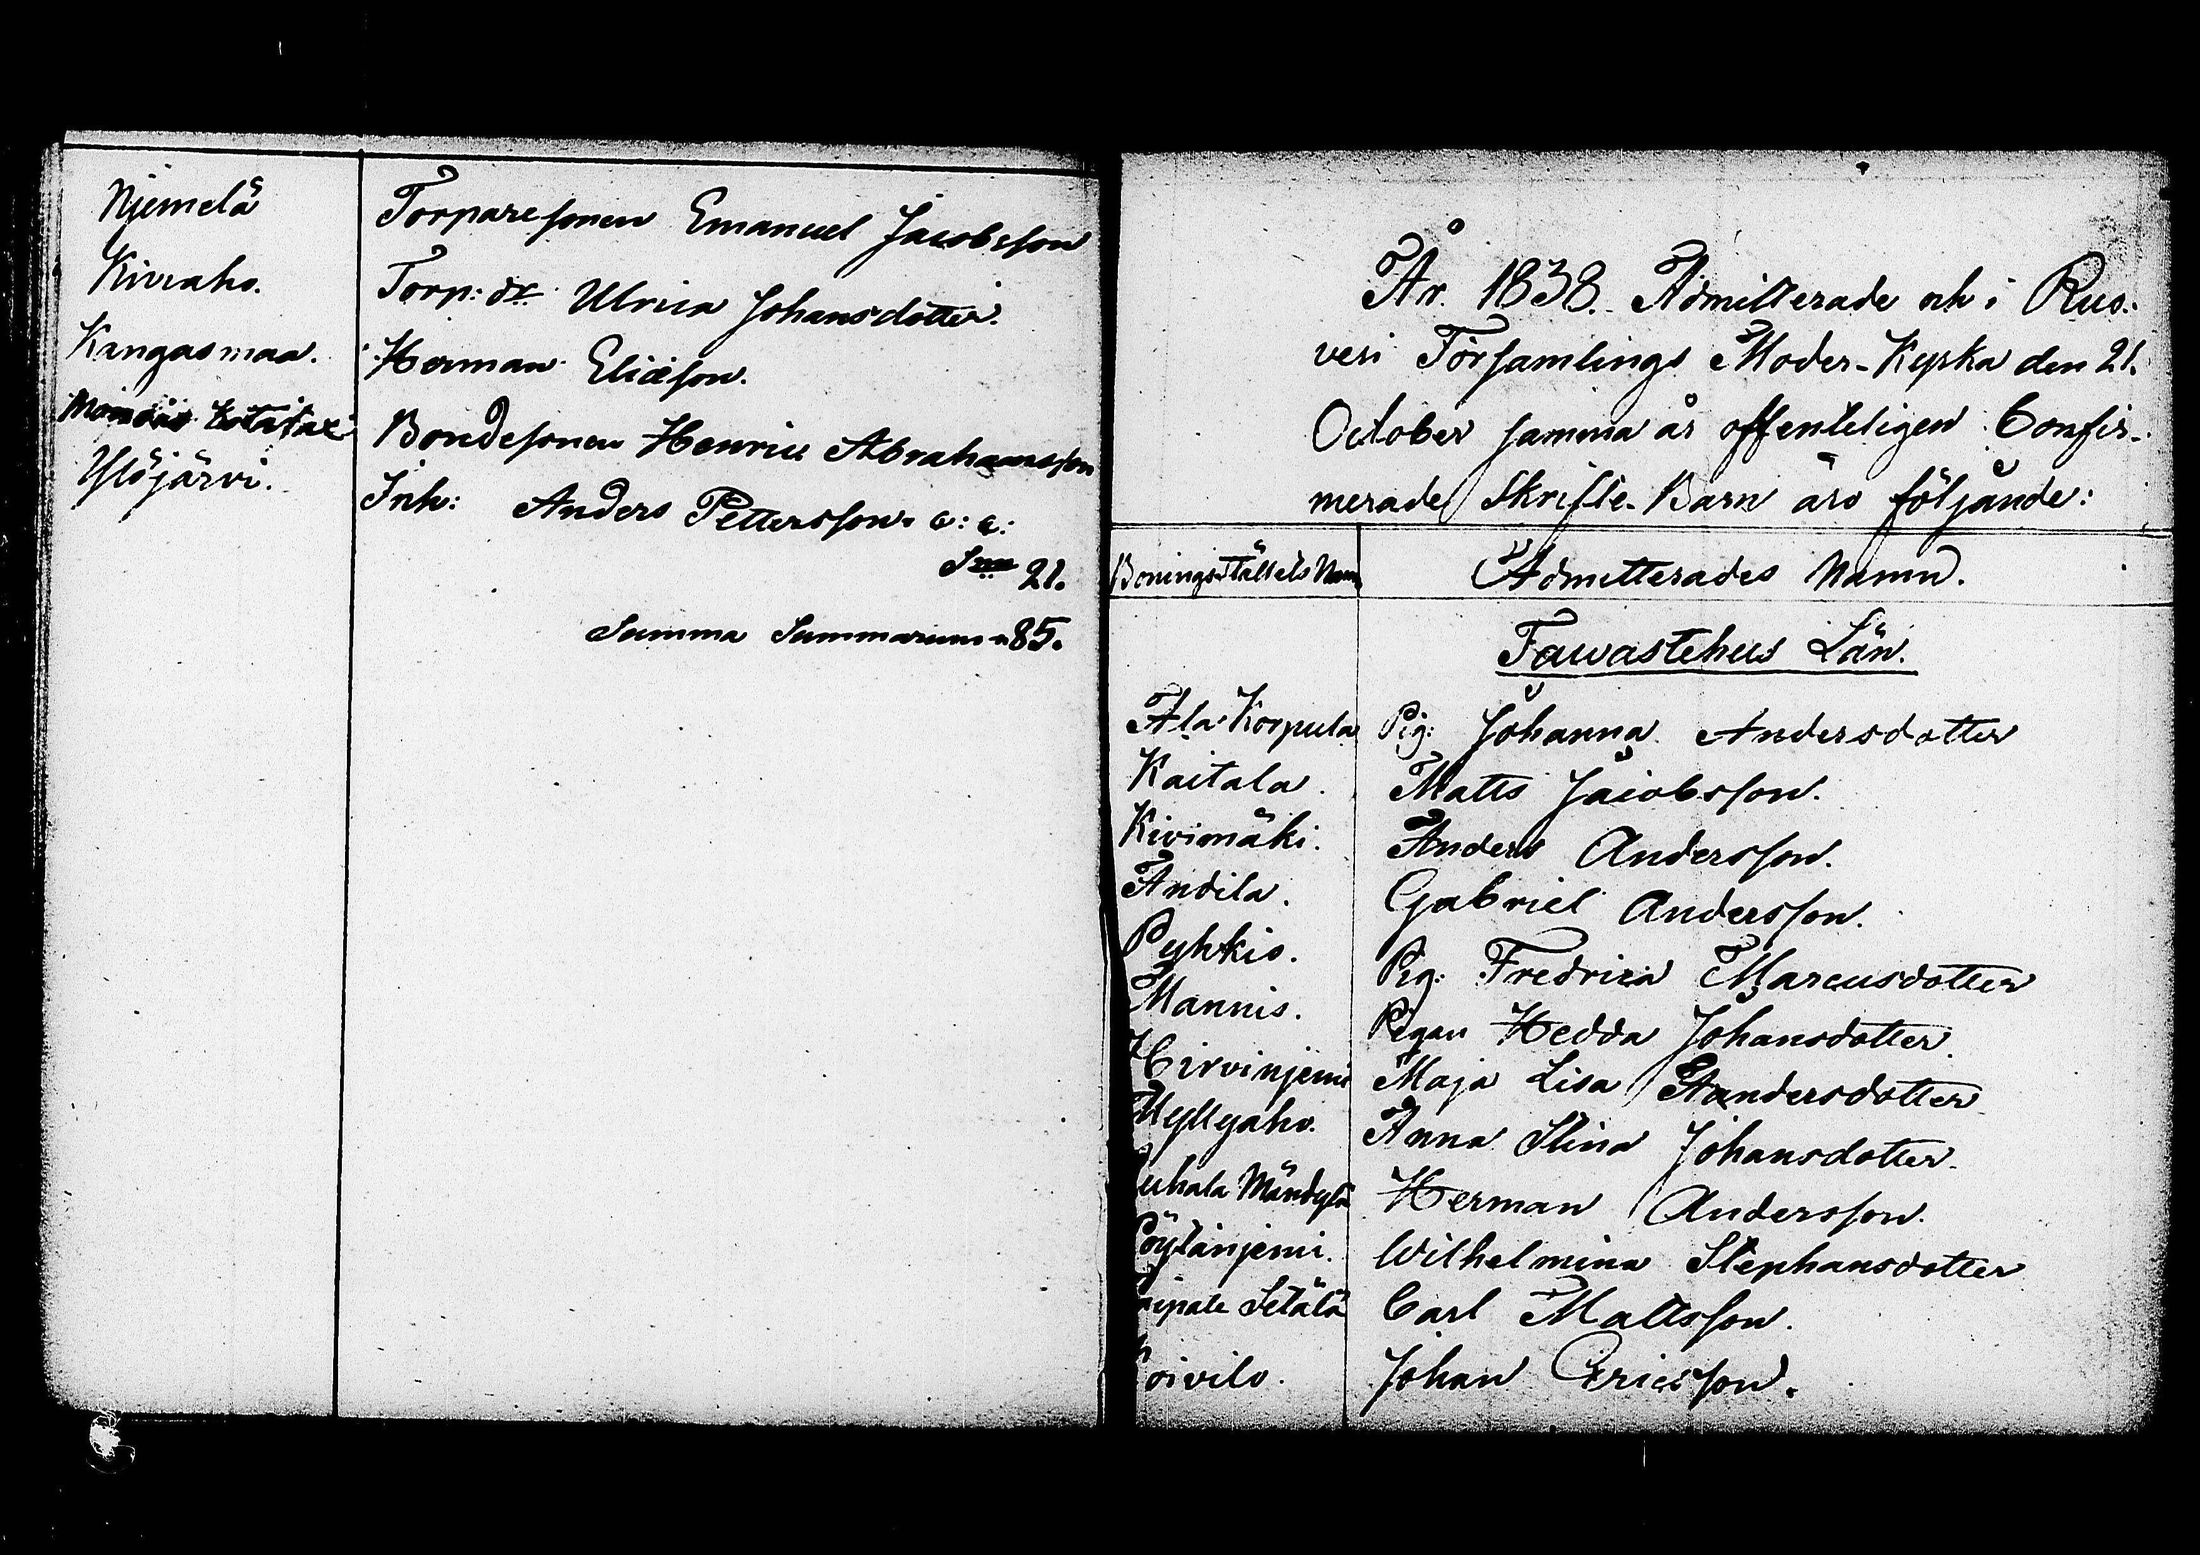 Njemelä Torparesonen Emanuel Jacobsson
Kivraho. Torp: dr. Ulrica Johansdotter.
Kangasmaa. Herman Eliæson.
Bondesonen Henric Abrahamsson
Ylöjärvi. Inh: Anders Pettersson. e: e:
Sma 21.
Summa Summarum 85.
År 1838. Admitterade och i Rus-
vesi Församlings Moder-Kyrka den 21.
October samma år offenteligen Confir-
merade Skrifte-Barn äro följande:
Boningsställets Namn Admitterades Namn.
Tawastehus Län.
Ala-Korpula Pig: Johanna Andersdotter
Kaitala. Matts Jacobsson.
Kivimäki. Anders Andersson.
Andila. Gabriel Andersson.
Pyhkis. Pig: Fredrica Marcusdotter
Mannis. Pigan Hedda Johansdotter.
Hirvinjemi Maja Lisa Andersdotter
Myllyaho. Anna Stina Johansdotter.
uhala Mändylä Herman Andersson.
Pöytänjemi. Wilhelmina Stephansdotter
aipale Setälä Carl Mattsson.
Koivilo. Johan Ericsson.